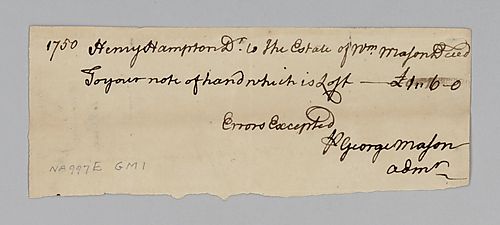 1750 Henry Hampton Dr. to The Estate of Wm Mason Deced
To your note of hand which is Lost — £1"6-0
Errors Excepted
George Mason
admr
NA997E GM1